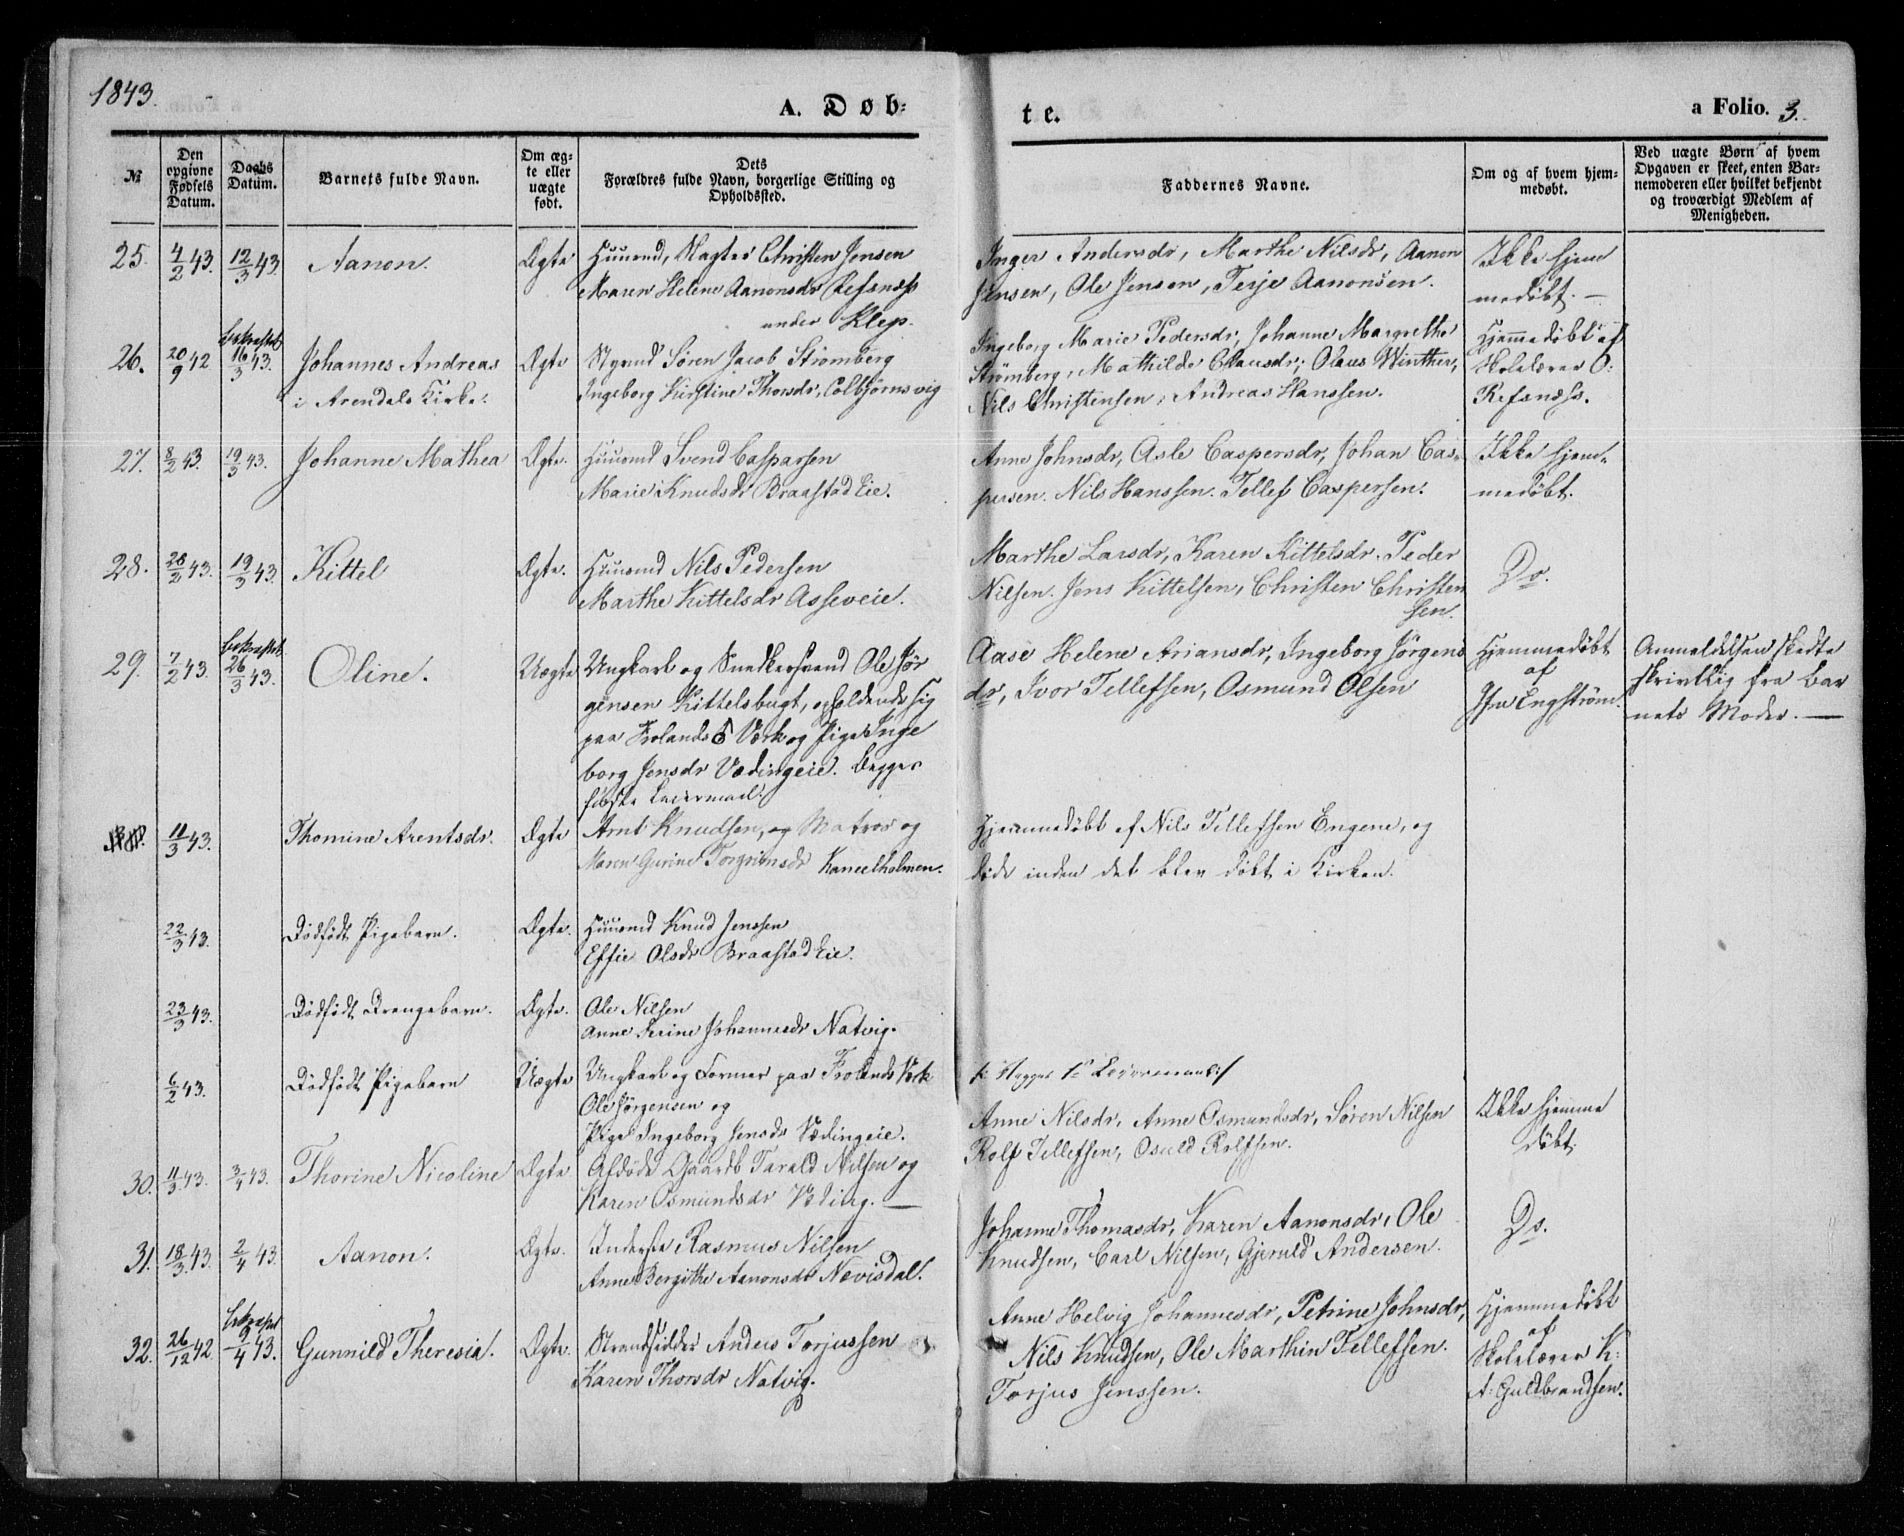 1843.
A. Døb-
te.
a Folio. 3.
№
Den opgivne Fødsels Datum.
Daabs Datum.
Barnets fulde Navn.
Om ægte eller uægte født.
Dets Forældres fulde Navn, borgerlige Stilling og Opholdssted.
Faddernes Navne.
Om og af hvem hjemmedøbt.
Ved uægte Børn af hvem Opgaven er skeet, enten Barnemoderen eller hvilket bekjendt og troværdigt Medlem af Menigheden.
25. 4/2 43. 12/3 43. Aanon. Ægte
Huusmd, Slagter Christen Jensen
Maren Helene Aanonsdr Refsnæss
under Klep.
Inger Andersdr, Marthe Nilsdr, Aanon
Jensen, Ole Jensen, Terje Aanonsen.
Ikke hjem
medøbt. —
26. 20/9 42 bekræftet 16/3 43. Johannes Andreas
i Arendals Kirke.
Ægte
Styrmd Søren Jacob Strømberg
Ingeborg Kirstine Thorsdr, Colbjørnsvig
Ingeborg Marie Pedersdr, Johanne Margrethe
Strømberg, Mathilde Clausdr, Olaus Winther,
Nils Christensen, Andreas Hanssen.
Hjemmedøbt af
Skolelærer O:
Refsnæss.
27. 8/2 43. 19/3 43. Johanne Mathea Ægte.
Huusmd Svend Casparsen
Marie Knudsdr Braastad Eie.
Anne Johnsdr, Asle Caspersdr, Johan Cas-
persen. Nils Hanssen. Tellef Caspersen.
Ikke hjem-
medøbt.
28. 26/2 43. 19/3 43. Kittel Ægte.
Huusmd Nils Pedersen
Marthe Kittelsdr Asseveie.
Marthe Larsdr, Karen Kittelsdr. Peder
Nilsen. Jens Kittelsen, Christen Christen
sen.
Do.
29. 7/2 43. bekræftet 26/3 43. Oline. Uægte
Ungkarl og Snedkersvend Ole Jør
gensen Kittelsbugt, opholdende sig
paa Frolands Værk og Pige Inge
borg Jensdr Vædingeie. Begges
første Leiermaal.
Aase Helene Ariansdr, Ingeborg Jørgens
dr, Ivor Tellefsen, Osmund Olsen
Hjemmedøbt
af
Jfru Engstrøm.
Anmeldelsen skedte
skriftlig fra Bar
nets Moder. —
11/3 43. Thomine Arentsdr. Ægte
Arnt Knudsen, Matros og
Maren Gurine Torgrimsdr Kaneelholmen.
Hjemmedøbt af Nils Tellefsen Engene, og
døde inden det blev døbt i Kirken.
22/3 43. Dødfødt Pigebarn. Ægte.
Huusmd Knud Jenssen
Effie Olsdr Braastad Eie.
23/3 43. Dødfødt Drengebarn. Ægte.
Ole Nilsen
Anne Serine Johannesdr Natvig.
6/2 43. Dødfødt Pigebarn Uægte
Ungkarl og Former paa Frolands Verk
Ole Jørgensen og
Pige Ingeborg Jensdr Vædingeie.
Begges 1ste Leiermaal
30. 11/3 43. 3/4 43. Thorine Nicoline Ægte.
Afdøde Gaardb Tarald Nilsen og
Karen Osmundsdr Væding. —
Anne Nilsdr, Anne Osmundsdr, Søren Nilsen
Rolf Tellefsen, Osuld Rolfsen.
Ikke hjemme
døbt.
31. 18/3 43. 2/4 43. Aanon. Ægte.
Inderste Rasmus Nilsen
Anne Bergithe Aanonsdr Nevisdal.
Johanne Thomasdr, Karen Aanonsdr, Ole
Knudsen, Carl Nilsen, Gjeruld Andersen.
Do.
32. 26/12 42. bekræftet 9/4 43. Gunnild Theresia. Ægte.
Strandsidder Anders Torjussen
Karen Thorsdr Natvig.
Anne Helvig Johannesdr, Petrine Johnsdr,
Nils Knudsen, Ole Marthin Tellefsen.
Torjus Jenssen.
Hjemmedøbt
af
Skolelærer K:
A: Guldbrandsen.